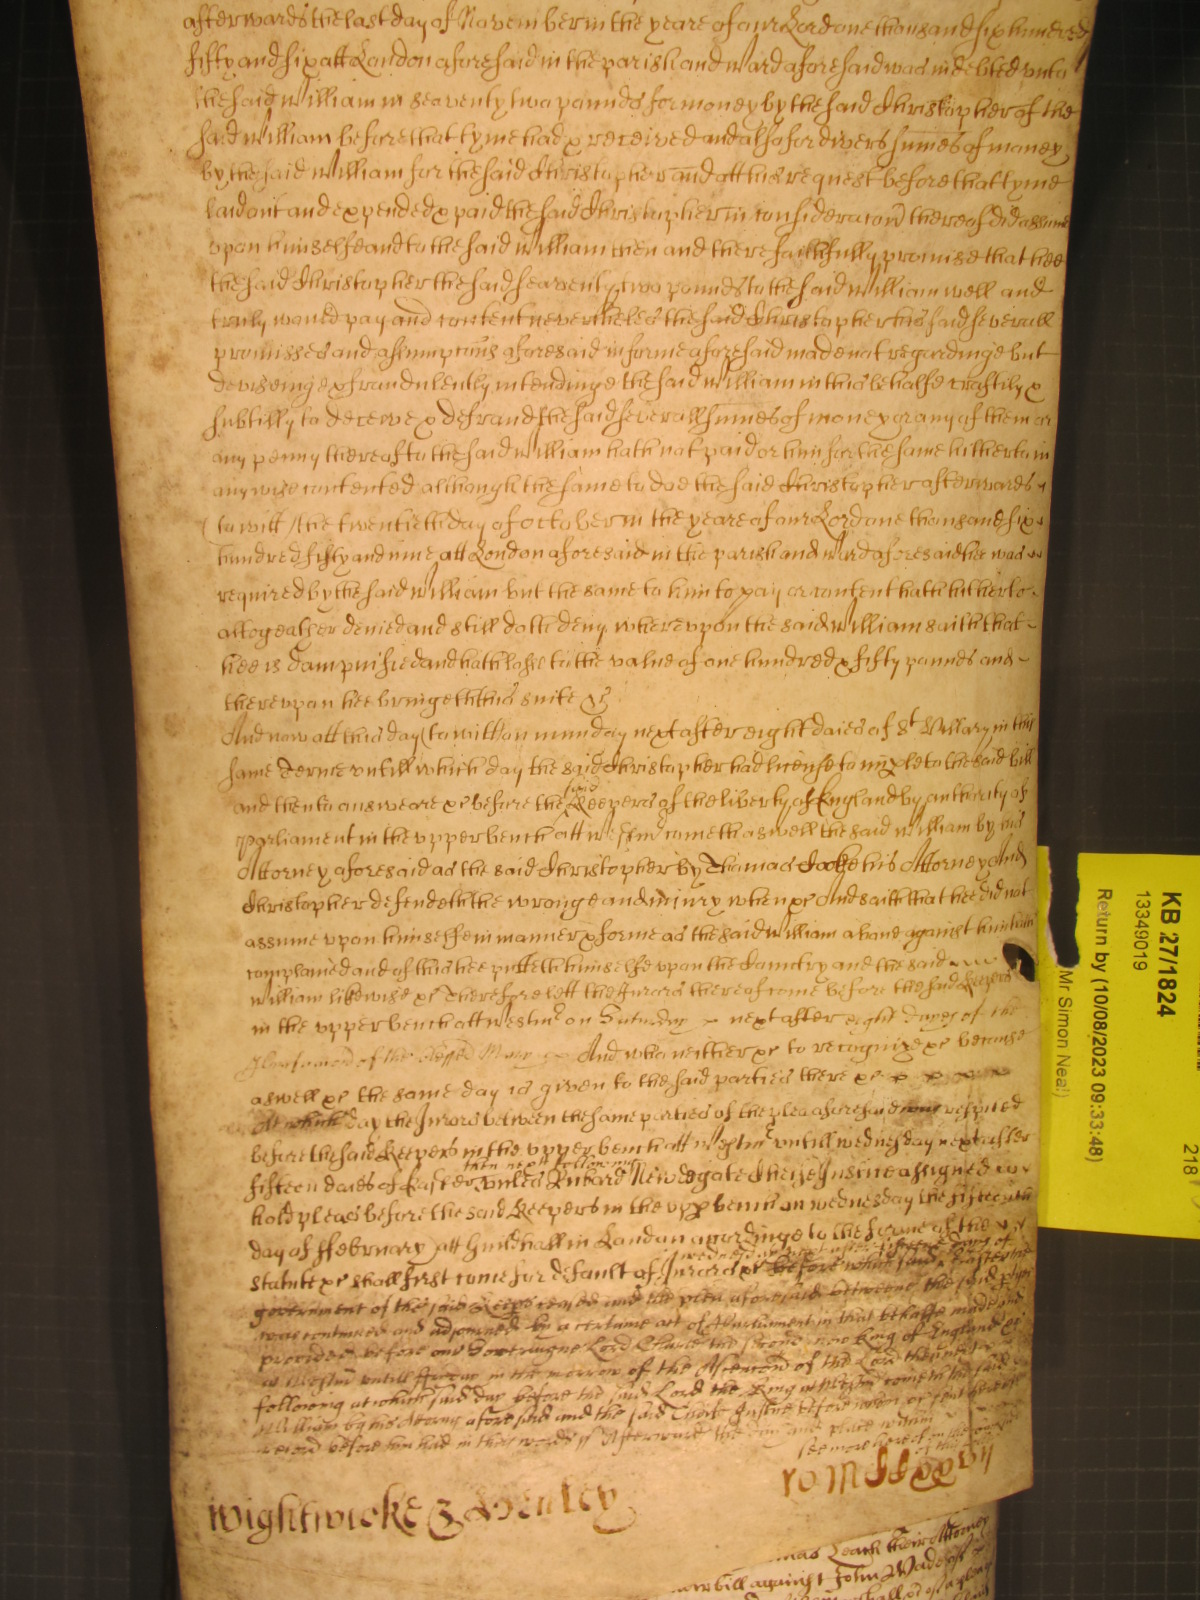 afterwards the last day of November in the yeare of our Lord one thousand six hundred
fifty and six att London aforesaid in the parish and ward aforesaid was indebted unto
the said William in seaventy two pounds for money by the said Christopher of the
said William before that tyme had & received and also for divers summes of money
by the said William for the said Christopher and att his request before that tyme
laid out and expended & paid the said Christopher in consideracon thereof did assume
upon himselfe and to the said William then and there faithfully promise that hee
the said Christopher the said seaventy two pounds to the said William well and
truly would pay and content neverthelesse the said Christopher his said severall
promisses and assumptions aforesaid in forme aforesaid made not regardinge but
deviseinge & fraudulently intendinge the said William in this behalfe craftily &
subtilly to deceive & defraud the said severall summes of money or any of them or
any penny thereof to the said William hath not paid or him for the same hitherto in
any wise contented although the same to doe the said Christopher afterwards
(to witt) the twentieth day of October in the yeare of our Lord one thousand six
hundred fifty and nine att London aforesaid in the parish and ward aforesaid hee was
required by the said William but the same to him to pay or content hath hitherto
altogeather denied and still doth deny whereupon the said William saith that
hee is dampnified and hath losse to the value of one hundred & fifty pounds and
thereupon hee bringeth his suite &c
And now att this day (to witt) on munday next after eight daies of St Hillary in this
same terme untill which day the said Christopher had license to imparle to the said bill
and then to answeare &c before the said Keepers of the liberty of England by authority of
Parliament in the upper bench att Westmr cometh aswell the said William by his
Attorney aforesaid as the said Christopher by Thomas Cooke his Attorney And
Christopher defendeth the wronge and injury when &c And saith that hee did not
assume upon himselfe in manner & forme as the said William above against him hath
complained and of this hee putteth himselfe upon the Countrey and the said
William likewise &c Therefore lett the Jurors thereof come before the said Keepers
in the upper bench att Westmr on Saturday next after eight dayes of the
of the And who neither &c to recognize &c because
aswell &c the same day is given to the said parties there &c
At which day the Jurors betweene the same parties of the plea aforesaid respited
before the said Keepers in the upper bench att Westmr untill wednesday next after
then next following
fifteen daies of Easter unles Richard Newdegate Cheife Justice assigned to
hold pleas before the said Keepers in the upper bench on wednesday the fifteenth
day of ffebruary att Guildhall in London accordinge to the forme of the
wednesday next after fifteene dayes of
statute &c shall first come for default of Jurors &c before which said Easter the
government of the said Keeps ceased and the plea aforesaid betweene the said ptyes
was continued and adjorned by a certaine act of Parliament in that behalfe made and
provided before our Soveraigne Lord Charles the second now King of England &c
at Westmr untill in the morrow of the Ascencon of the Lord then next
following at which said day before the said Lord the King at Westmr cometh the said
William by his Attorny aforesaid and the said Cheife Justice before whom &c sent here his
record before him had in these words ss Afterwards the day and place within
see more hereof on the
of this
ro MCCxxvii
Wightwicke & Henley
Thomas Leach their Attorney
bill against John Wade of
KB 27/1824
13349019
Return by (10/08/2023 09:33:48)
Mr Simon Neal
218